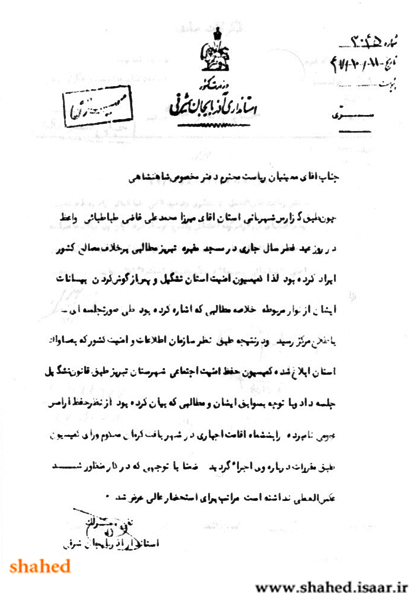 شماره ۳۰۲۵
تاریخ ۴۷/۱۰/۱۱
پیوست
وزارت کشور
استانداری آذربایجان شرقی
سری
جناب آقای معینیان ریاست محترم دفتر مخصوص شاهنشاهی
چون طبق گزارش شهربانی استان آقای میرزا محمد علی قاضی طباطبائی واعظ
در روز عید فطر سال جاری در مسجد تبریز مطالبی برخلاف مصالح کشور
ایراد کرده بود لذا کمیسیون امنیت استان تشکیل و پس از گوش کردن بیانات
ایشان از نوار مربوطه خلاصه مطالبی که اشاره کرده بود طی صورتجلسه ای
باطلاع مرکز رسید و در نتیجه طبق نظر سازمان اطلاعات و امنیت کشور که بساواک
استان ابلاغ شده کمیسیون حفظ امنیت اجتماعی شهرستان تبریز طبق قانون تشکیل
جلسه داد و با توجه بسوابق ایشان و مطالبی که بیان کرده بود از نظر حفظ آرامش
عمومی نامبرده را بششماه اقامت اجباری در شهر بافت کرمان محکوم و رای کمیسیون
طبق مقررات درباره وی اجراء گردید ضمنا با توجهی که در کار منظور شد
عکس العملی نداشته است مراتب برای استحضار عالی عرض شد
استاندار آذربایجان شرقی
shahed
www.shahed.isaar.ir